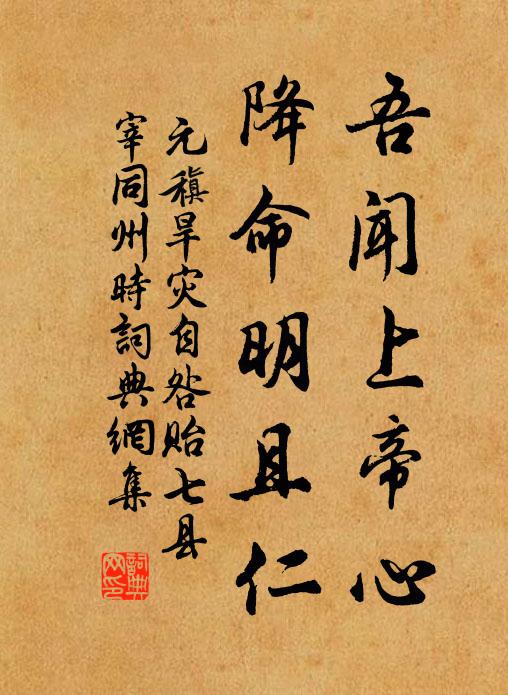 吾闻上帝心
降命明且仁
元稹旱灾自咎贻七县
宰同州時詞典網集
詞典
网印